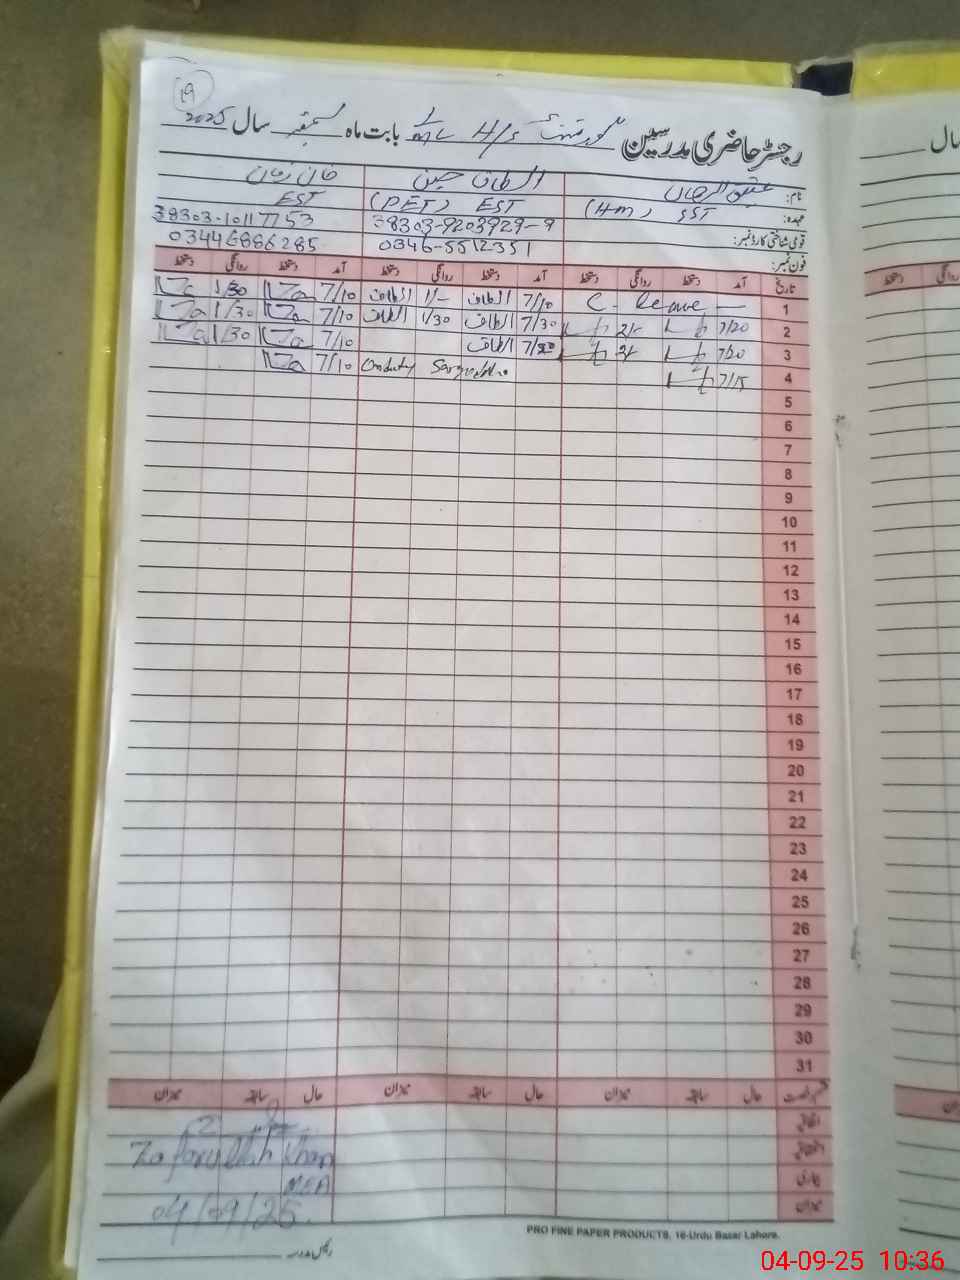 19
رجسٹر حاضری مدرسین گورنمنٹ H/S بابت ماہ ستمبر سال 2025
نام: عتیق الرحمان الطاف حسین خان زمان
عہدہ: SST (HM) (PET) EST EST
قومی شناختی کارڈ نمبر: 38303-9203929-9 38303-10117753
فون نمبر: 0346-5512351 03446886285
تاریخ آمد دستخط روانگی دستخط آمد دستخط روانگی دستخط آمد دستخط روانگی دستخط
1 C - Leave 7/10 الطاف 1/- الطاف 7/10 1/30
2 7/20 2/- 7/30 الطاف 1/30 الطاف 7/10 1/30
3 7/20 2/- الطاف 7/10 1/30
4 7/15 Onduty 7/10
5
6
7
8
9
10
11
12
13
14
15
16
17
18
19
20
21
22
23
24
25
26
27
28
29
30
31
حال سابقہ میزان حال سابقہ میزان حال سابقہ میزان
اتفاقیہ
بیماری
میزان
Zafarullah Khan
MEA
04/09/25
رئیس مدرسہ
PRO FINE PAPER PRODUCTS. 16-Urdu Bazar Lahore.
سال
دستخط
04-09-25 10:36